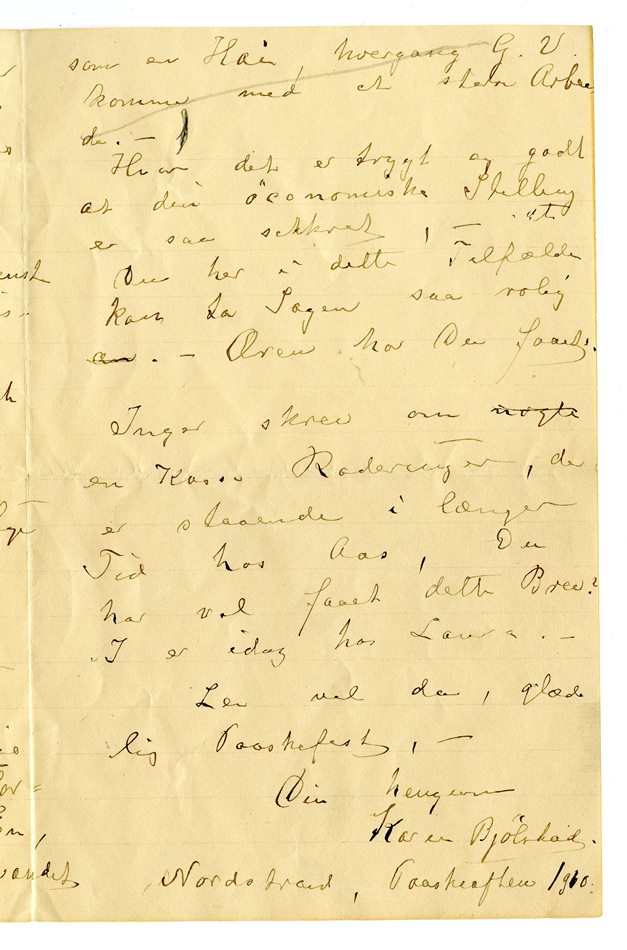 som en Hai, hvergang G. V.
komme med et større Arbei
de. —
Hvor det er trygt og godt
at din öconomiske Stilling
er saa sikkret, — at
Du her i dette Tilfælde
kan ta Sagen saa rolig
an. — Æren har Du faaet.
Inger skrev om nogle
en Kasse Raderinger, der
er staaende i længer
Tid hos Aas, Du
har vel faaet dette Brev?
I er idag hos Laura. —
Lev vel da, glæde
lig Paaskefest, —
Din hengivne
Karen Bjölstad.
Nordstrand, Paaskeaften 1910.